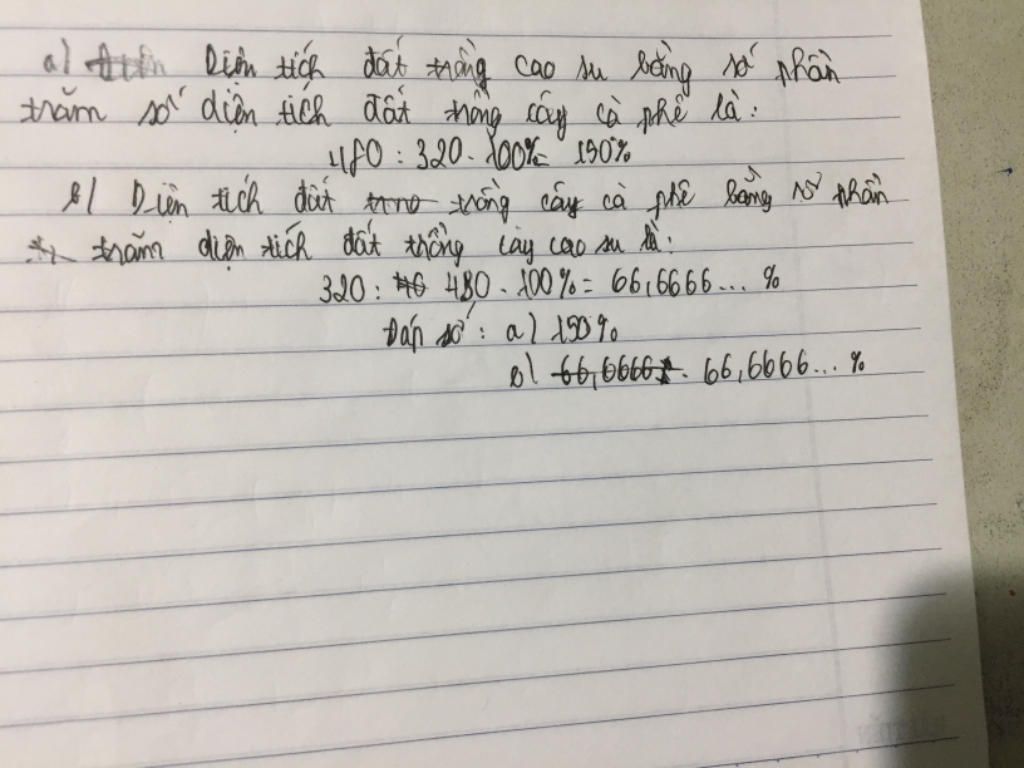 a) Diện tích đất trồng cao su bằng số phần
trăm số diện tích đất trồng cây cà phê là:
480 : 320 . 100% = 150%
b) Diện tích đất trồng cây cà phê bằng số phần
trăm diện tích đất trồng cây cao su là:
320 : 480 . 100% = 66,6666... %
Đáp số: a) 150%
b) 66,6666... %